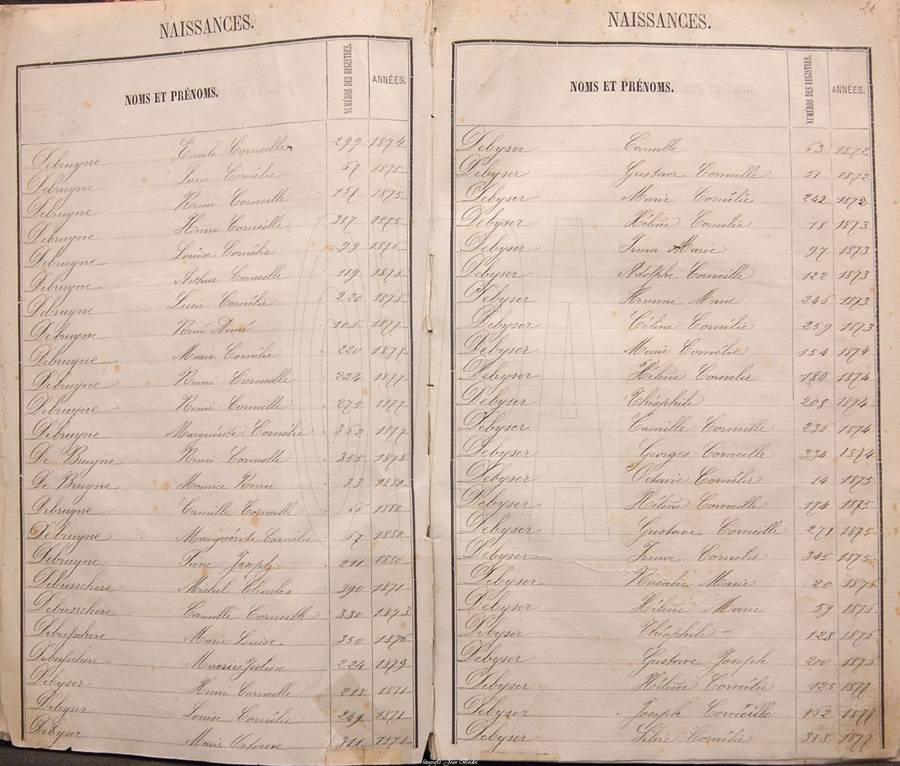 NAISSANCES.
NOMS ET PRÉNOMS. NUMÉROS DES REGISTRES. ANNÉES.
Debruyne Emile Corneille 299 1874
Debruyne Lucie Cornélie 67 1875
Debruyne Remi Corneille 1875
Debruyne Henri Corneille 1875
Debruyne Louise Cornélie 99
Debruyne Arthur Corneille 119
Debruyne Lucie Cornélie 220
Debruyne René 105 1877
Debruyne Marie Cornélie 220 1877
Debruyne Remi Corneille 224 1877
Debruyne Remi Corneille 275 1877
Debruyne Marguerite Cornélie 362 1877
De Bruyne Remi Corneille 355 1878
De Bruyne Maurice Remi 33 1880
Debruyne Camille Corneille 1880
Debruyne Marguerite Cornélie 67 1880
Debruyne Pierre Joseph 211 1880
Debusschere Michel Charles 390 1871
Debusschere Camille Corneille 330 1873
Debusschere Marie Louise 350
Debusschere Maurice Julien 224 1879
Debyser Henri Corneille 218 1871
Debyser Louise Cornélie 249 1871
Debyser Marie 311 1871
21
NAISSANCES.
NOMS ET PRÉNOMS. NUMÉROS DES REGISTRES. ANNÉES.
Debyser Corneille 63 1872
Debyser Gustave Corneille 51 1872
Debyser Marie Cornélie 242 1872
Debyser Hélène Cornélie 18 1873
Debyser Irma Marie 97 1873
Debyser Adolphe Corneille 122 1873
Debyser Marie 245 1873
Debyser Céline Cornélie 259 1873
Debyser Marie Cornélie 154 1874
Debyser Hélène Cornelie 180 1874
Debyser Théophile 208 1874
Debyser Camille Corneille 236 1874
Debyser Georges Corneille 334 1874
Debyser Octavie Cornélie 14 1875
Debyser Hélène 174 1875
Debyser Gustave Corneille 271 1875
Debyser Irma Cornelie 345 1875
Debyser Rosalie Marie 20
Debyser Hélène Marie 59
Debyser Théophile 128
Debyser Gustave Joseph 200
Debyser Hélène Cornélie 125 1877
Debyser Joseph Corneille 162 1877
Debyser Silvie Cornélie 318 1877